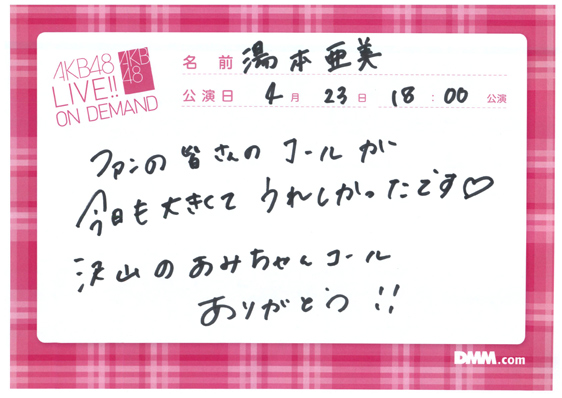 AKB48
LIVE!!
ON DEMAND
AKB
48
名前 湯本亜美
公演日 4月 23日 18:00 公演
ファンの皆さんのコールが
今日も大きくて うれしかったです♡
沢山のあみちゃんコール
ありがとう!!
DMM.com